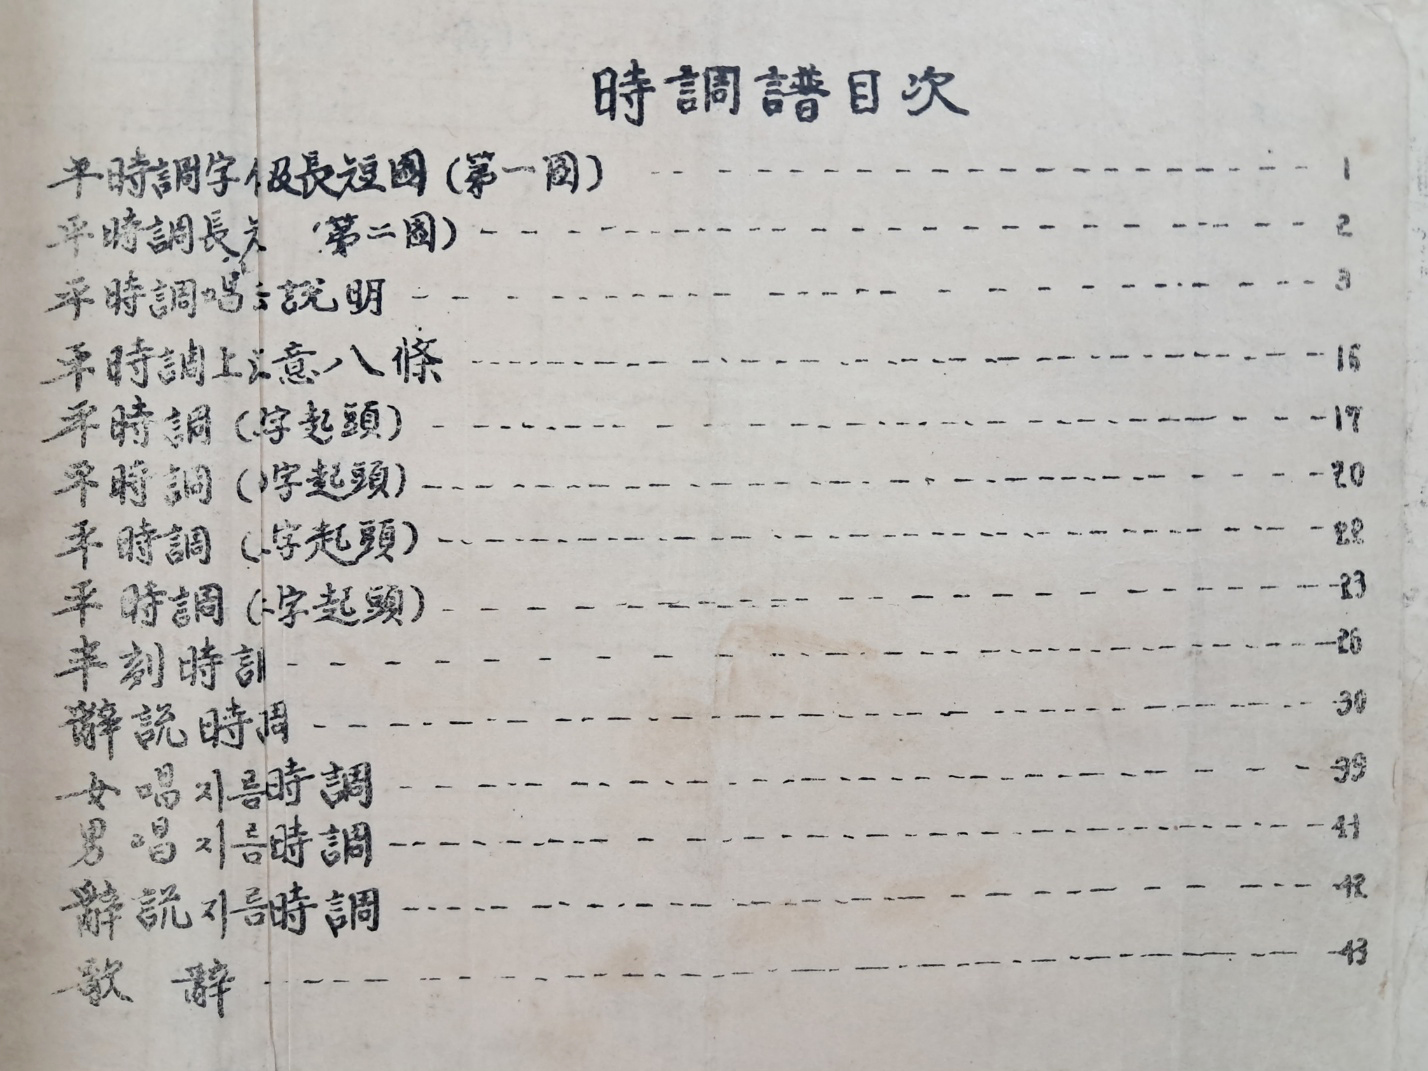 時調譜目次
平時調字 及長短圖(第一圖) 1
平時調長 (第二圖) 2
平時調唱 說明 3
平時調上 意八條 16
平時調 ( 字起頭) 17
平時調 ( 字起頭) 20
平時調 ( 字起頭) 22
平時調 ( 字起頭) 23
半刻時調 26
辭說時調 30
女唱지름時調 39
男唱지름時調 41
辭說지름時調 42
歌辭 43